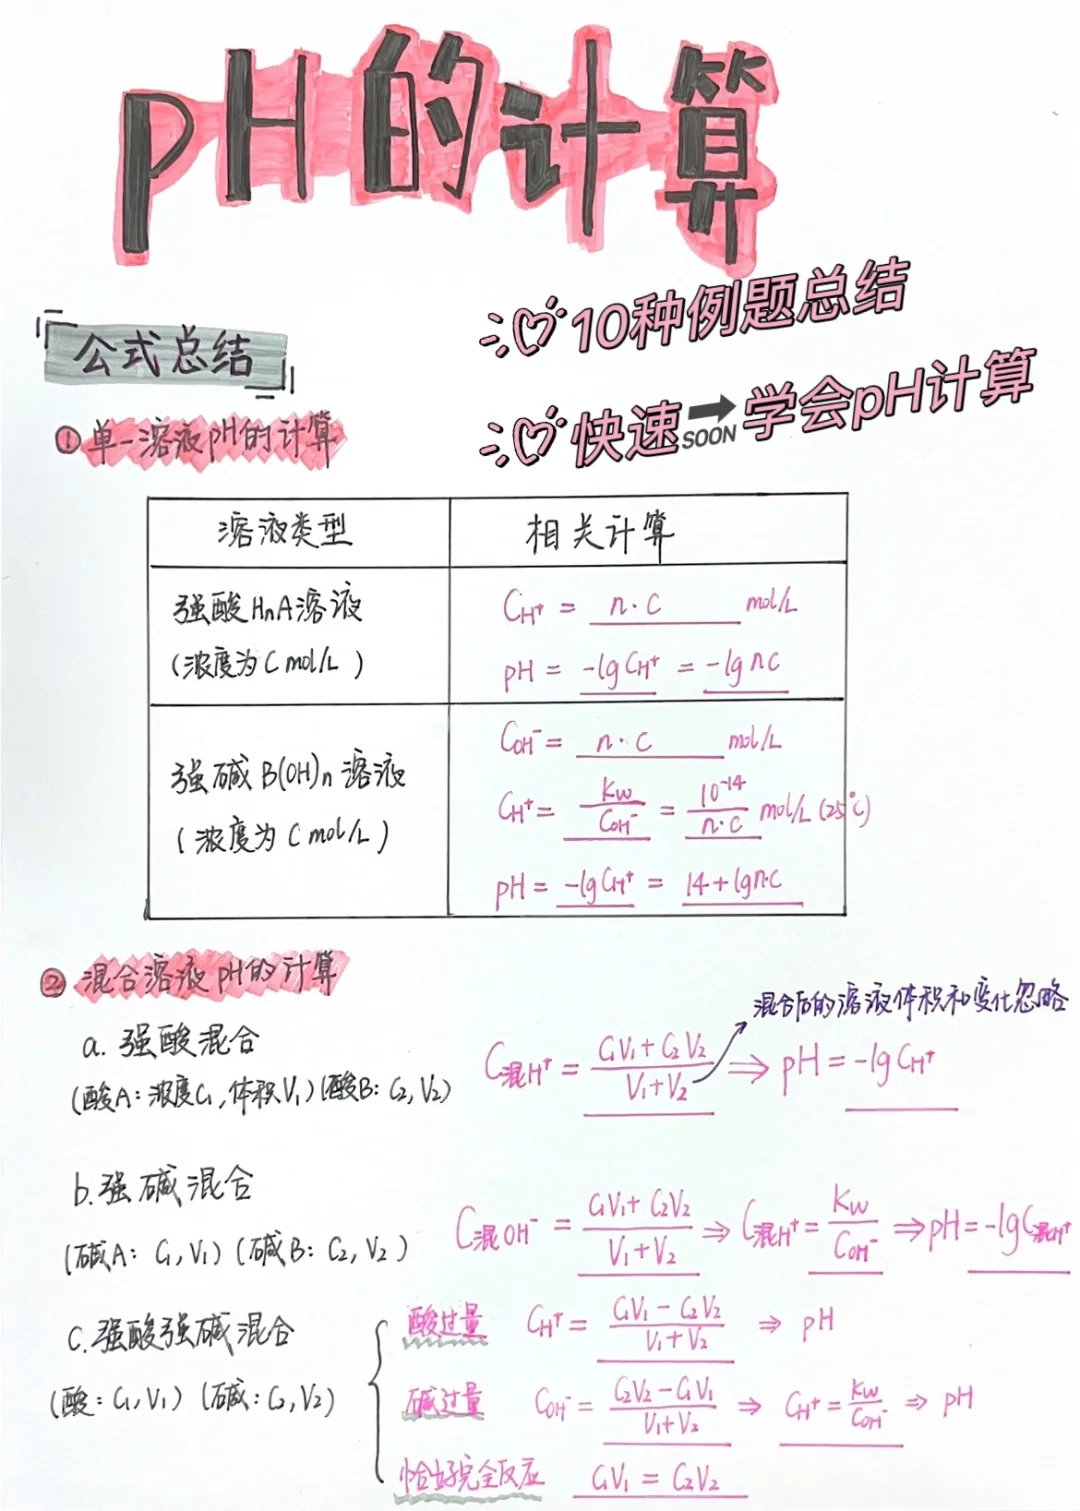 pH的计算
10种例题总结
公式总结
快速 SOON 学会pH计算
①单一溶液pH的计算
溶液类型 相关计算
强酸HnA溶液
(浓度为C mol/L)
C_H⁺ = n·C mol/L
pH = -lg C_H⁺ = -lg nc
强碱B(OH)n溶液
(浓度为C mol/L)
C_OH⁻ = n·C mol/L
C_H⁺ = Kw/C_OH⁻ = 10⁻¹⁴/n·C mol/L (25℃)
pH = -lg C_H⁺ = 14+lg n·c
②混合溶液pH的计算
混合后的溶液体积和变化忽略
a. 强酸混合
(酸A:浓度C₁,体积V₁)(酸B:C₂,V₂)
C混H⁺ = C₁V₁+C₂V₂/V₁+V₂ ⇒ pH = -lg C_H⁺
b. 强碱混合
(碱A: C₁,V₁)(碱B: C₂,V₂)
C混OH⁻ = C₁V₁+C₂V₂/V₁+V₂ ⇒ C混H⁺ = Kw/C_OH⁻ ⇒ pH = -lg C混H⁺
c. 强酸强碱混合
(酸:C₁,V₁)(碱:C₂,V₂)
酸过量 C_H⁺ = C₁V₁-C₂V₂/V₁+V₂ ⇒ pH
碱过量 C_OH⁻ = C₂V₂-C₁V₁/V₁+V₂ ⇒ C_H⁺ = Kw/C_OH⁻ ⇒ pH
恰好完全反应 C₁V₁ = C₂V₂